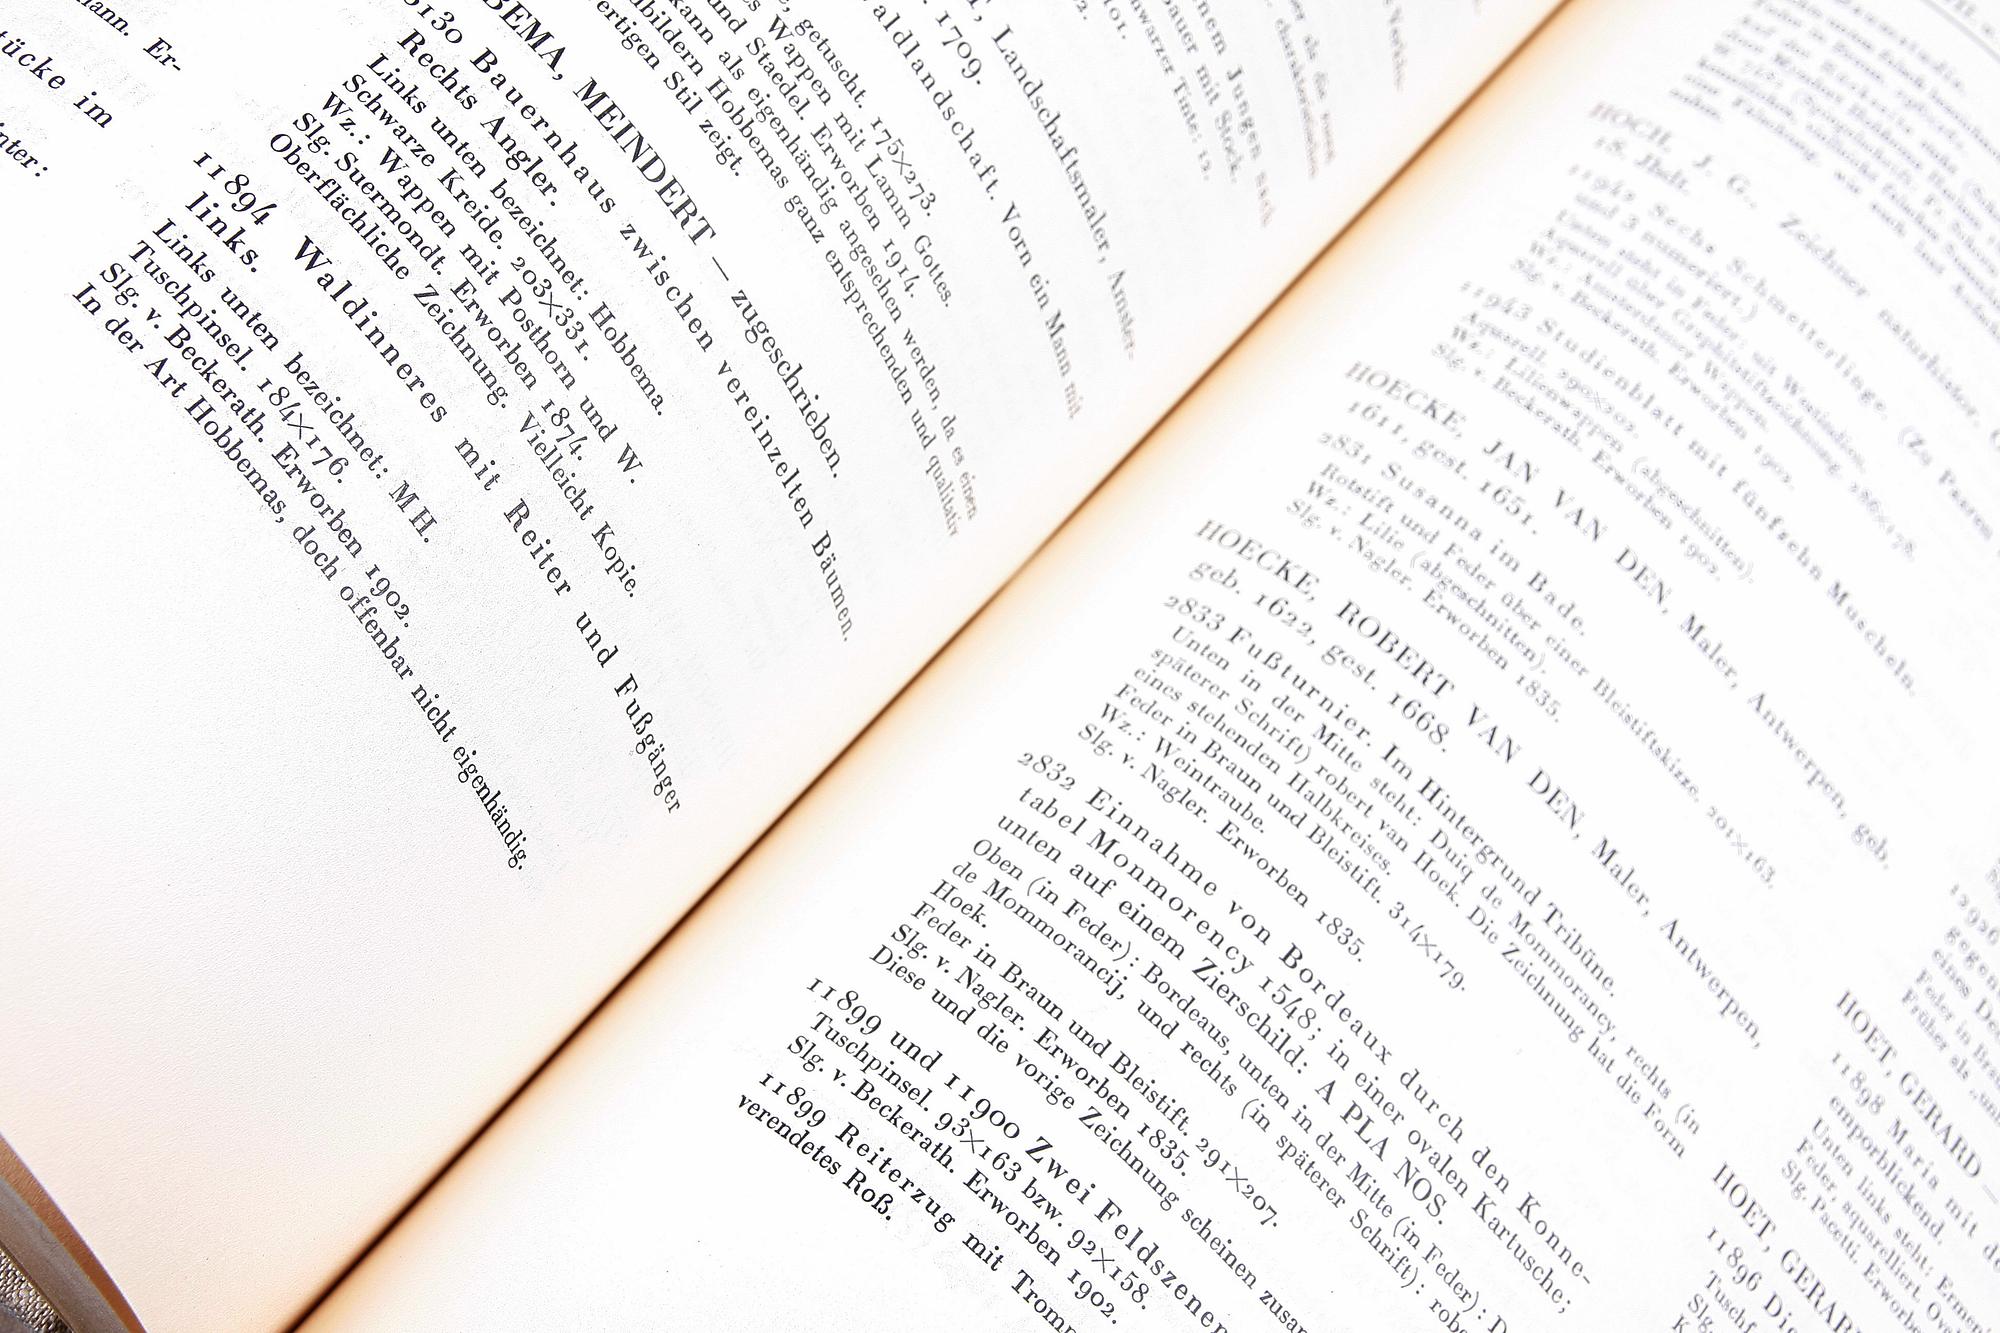 ann. Er-
tücke im
nter:
, getuscht. 175×273.
s Wappen mit Lamm Gottes.
und Staedel. Erworben 1914.
kann als eigenhändig angesehen werden, da es einen
bildern Hobbemas ganz entsprechenden und qualitativ
ertigen Stil zeigt.
BEMA, MEINDERT — zugeschrieben.
5130 Bauernhaus zwischen vereinzelten Bäumen.
Rechts Angler.
Links unten bezeichnet: Hobbema.
Schwarze Kreide. 203×331.
Wz.: Wappen mit Posthorn und W.
Slg. Suermondt. Erworben 1874.
Oberflächliche Zeichnung. Vielleicht Kopie.
11894 Waldinneres mit Reiter und Fußgänger
links.
Links unten bezeichnet: MH.
Tuschpinsel. 184×176.
Slg. v. Beckerath. Erworben 1902.
In der Art Hobbemas, doch offenbar nicht eigenhändig.
, Landschaftsmaler, Amster-
. 1709.
aldlandschaft. Vorn ein Mann mit
nem Jungen
bauer mit Stock.
hwarzer Tinte: 12.
HOCH, J. G., Zeichner naturhistor.
18. Jhdt.
11942 Sechs Schmetterlinge. (Zu Paaren
und 3 numeriert.)
Aquarell über Graphitstiftzeichnung. 286×178.
Wz.: Amsterdamer Wappen.
Slg. v. Beckerath. Erworben 1902.
11943 Studienblatt mit fünfzehn Muscheln.
Aquarell. 290×202.
Wz.: Lilienwappen (abgeschnitten).
Slg. v. Beckerath. Erworben 1902.
HOECKE, JAN VAN DEN, Maler, Antwerpen, geb.
1611, gest. 1651.
2831 Susanna im Bade.
Rotstift und Feder über einer Bleistiftskizze. 201×163.
Wz.: Lilie (abgeschnitten).
Slg. v. Nagler. Erworben 1835.
HOECKE, ROBERT VAN DEN, Maler, Antwerpen,
geb. 1622, gest. 1668.
2833 Fußturnier. Im Hintergrund Tribüne.
Unten in der Mitte steht: Duiq de Mommorancy, rechts (in
späterer Schrift) robert van Hock. Die Zeichnung hat die Form
eines stehenden Halbkreises.
Feder in Braun und Bleistift. 314×179.
Wz.: Weintraube.
Slg. v. Nagler. Erworben 1835.
2832 Einnahme von Bordeaux durch den Konne-
tabel Monmorency 1548; in einer ovalen Kartusche;
unten auf einem Zierschild: A PLA NOS.
Oben (in Feder): Bordeaus, unten in der Mitte (in Feder): D
de Mommorancij, und rechts (in späterer Schrift): robe
Hoek.
Feder in Braun und Bleistift. 291×207.
Slg. v. Nagler. Erworben 1835.
Diese und die vorige Zeichnung scheinen zusa
11899 und 11900 Zwei Feldszenen
Tuschpinsel. 93×163 bzw. 92×158.
Slg. v. Beckerath. Erworben 1902.
11899 Reiterzug mit Tromp
verendetes Roß.
12926
gegen
eines De
Feder in Bra
Früher als „un
HOET, GERARD —
11898 Maria mit de
emporblickend.
Unten links steht: Erme
Feder, aquarelliert, Ove
Slg. Pacetti. Erworbe
HOET, GERAR
11896 Die
Tuschf
Slg.
K